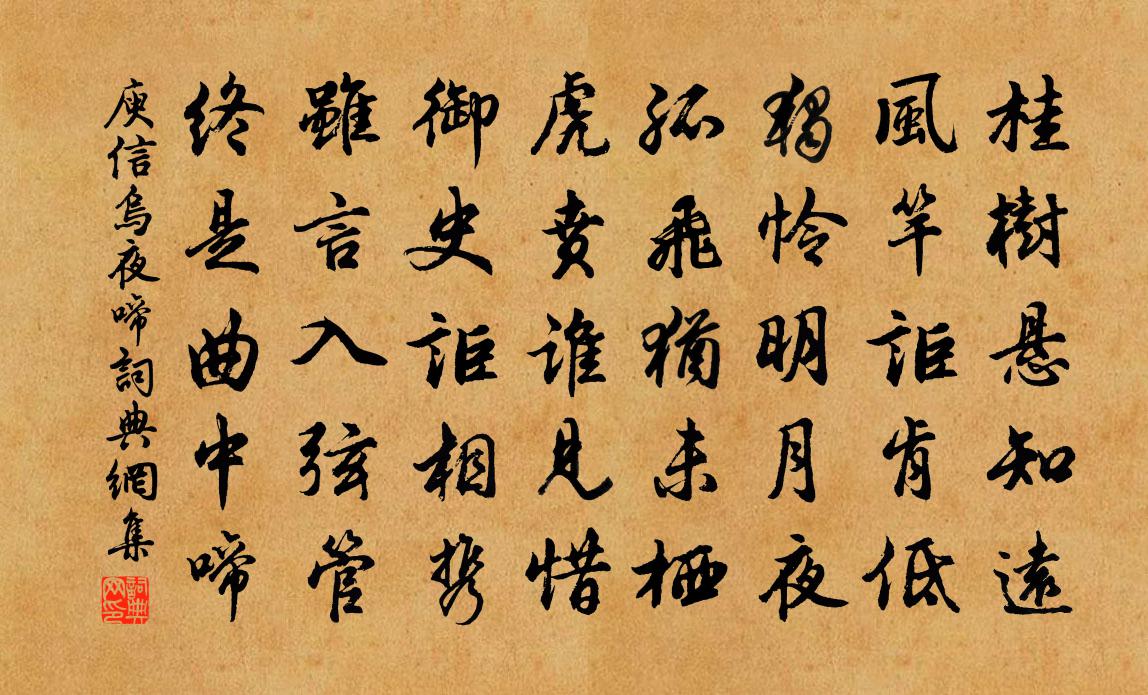 桂樹悬知遠
風竿詎肯低
獨怜明月夜
孤飛猶未栖
虎賁誰見惜
御史詎相携
雖言入弦管
終是曲中啼
庾信烏夜啼詞典網集
詞典网印